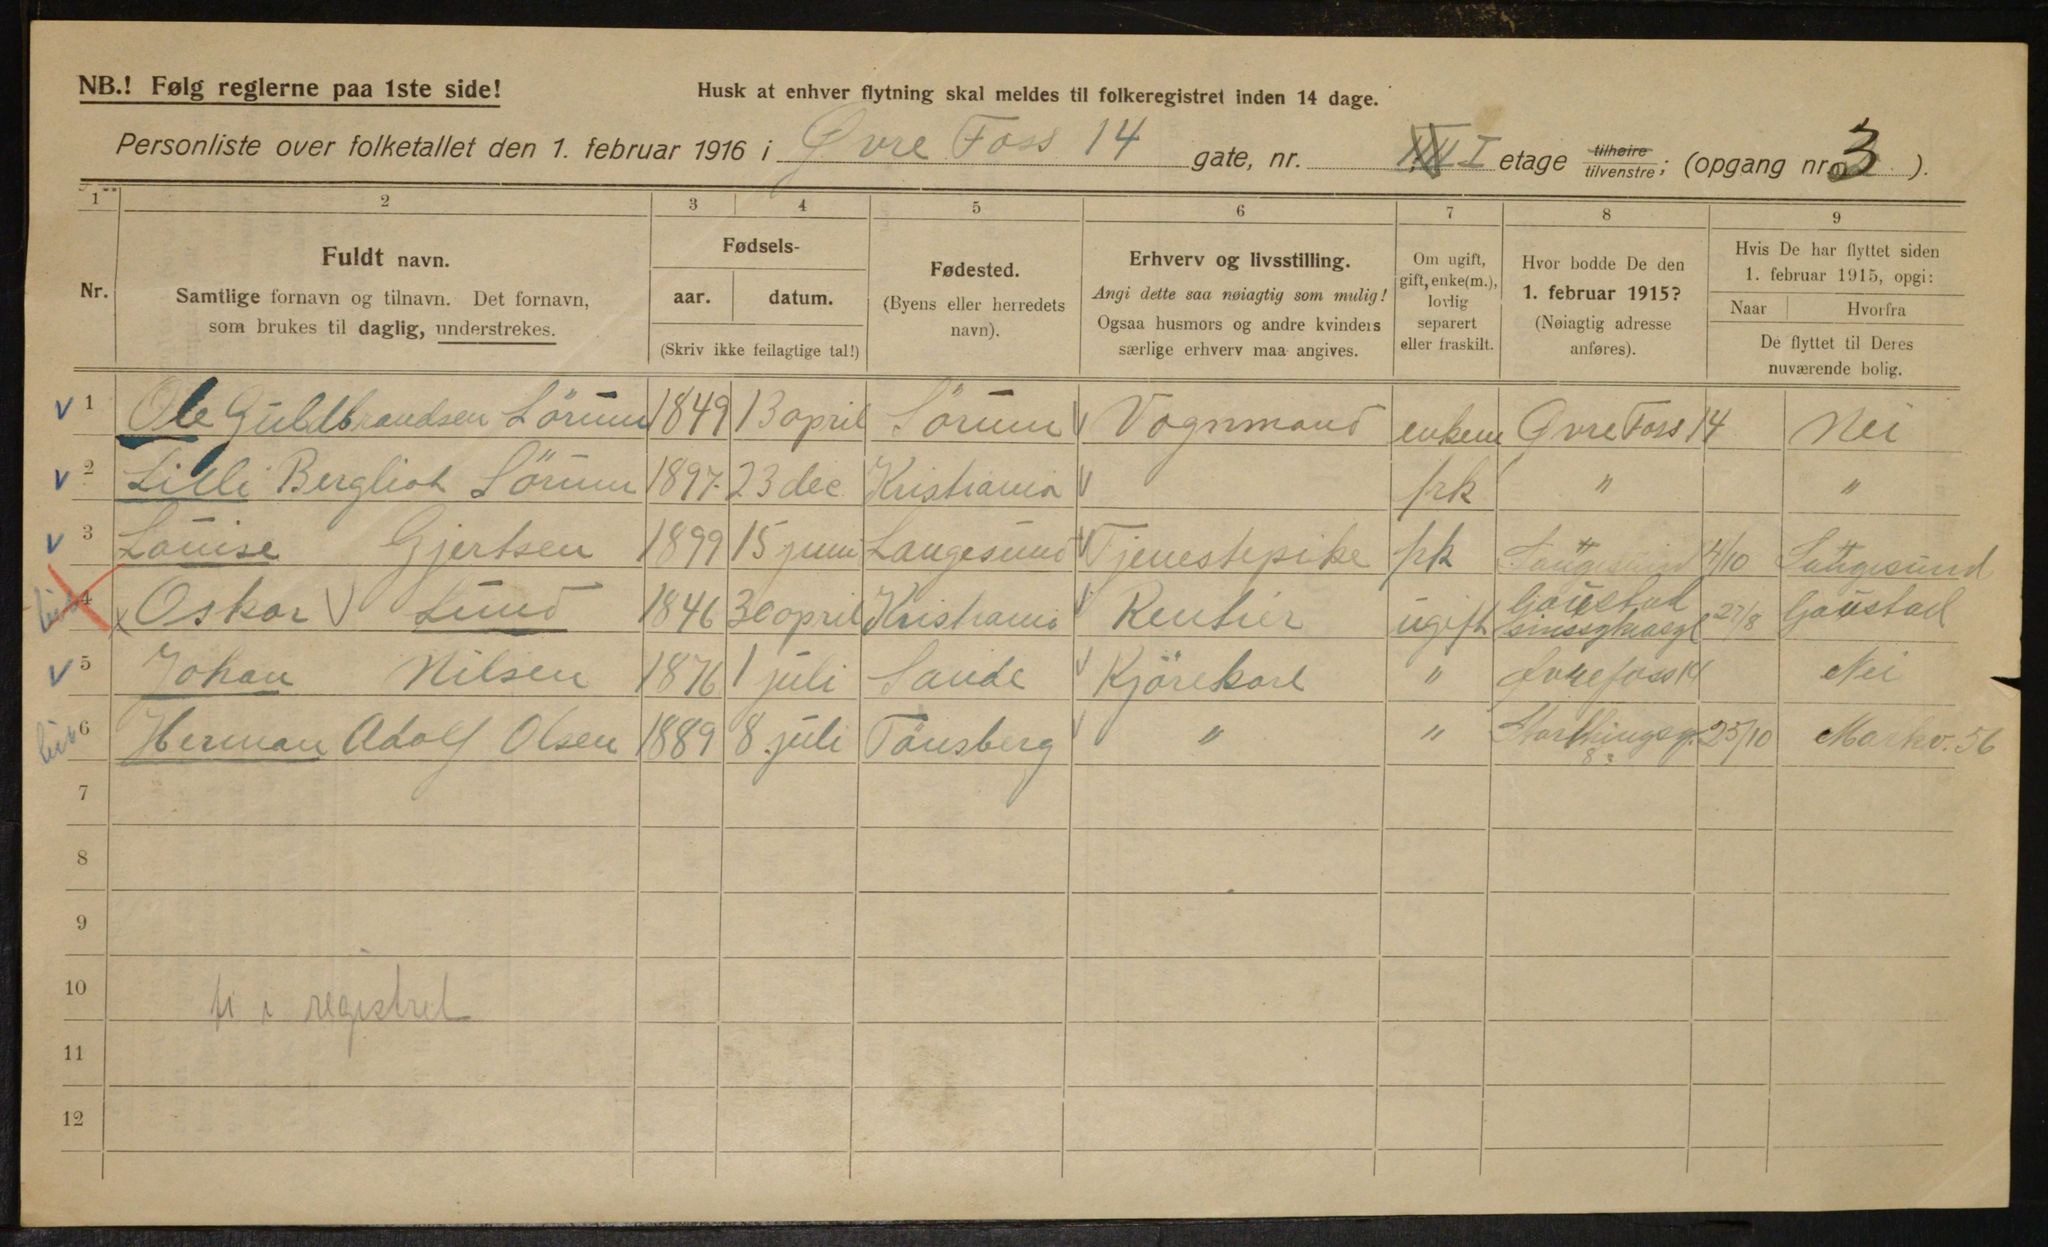 NB.! Følg reglerne paa 1ste side!
Husk at enhver flytning skal meldes til folkeregistret inden 14 dage.
Personliste over folketallet den 1. februar 1916 i Øvre Foss 14 gate, nr. I etage tilhøire tilvenstre; (opgang nr. 3 ).
1 2 3 4 5 6 7 8 9
Nr.
Fuldt navn.
Samtlige fornavn og tilnavn. Det fornavn,
som brukes til daglig, understrekes.
Fødsels-
aar. datum.
(Skriv ikke feilagtige tal!)
Fødested.
(Byens eller herredets
navn).
Erhverv og livsstilling.
Angi dette saa nøiagtig som mulig!
Ogsaa husmors og andre kvinders
særlige erhverv maa angives.
Om ugift,
gift, enke(m.),
lovlig
separert
eller fraskilt.
Hvor bodde De den
1. februar 1915?
(Nøiagtig adresse
anføres).
Hvis De har flyttet siden
1. februar 1915, opgi:
Naar Hvorfra
De flyttet til Deres
nuværende bolig.
1 Ole Guldbrandsen Sörum 1849 13 april Sörum Vognmand enkem Øvre Foss 14 Nei
2 Lilli Bergliot Sörum 1897 23 dec Kristiania pk " "
3 Louise Gjertsen 1899 15 juni Langesund Tjenestepike pk Langesund 4/10 Langesund
4 Oskar Lund 1846 30 april Kristiania Rentier ugift Gaustad 27/8 Gaustad
5 Johan Nilsen 1876 1 juli Sande Kjörekarl " Øvrefoss 14 Nei
6 Herman Adolf Olsen 1889 8 juli Tönsberg " " Storthingsg. 8 25/10 Markv. 56
7
8
9
10
i registret
11
12